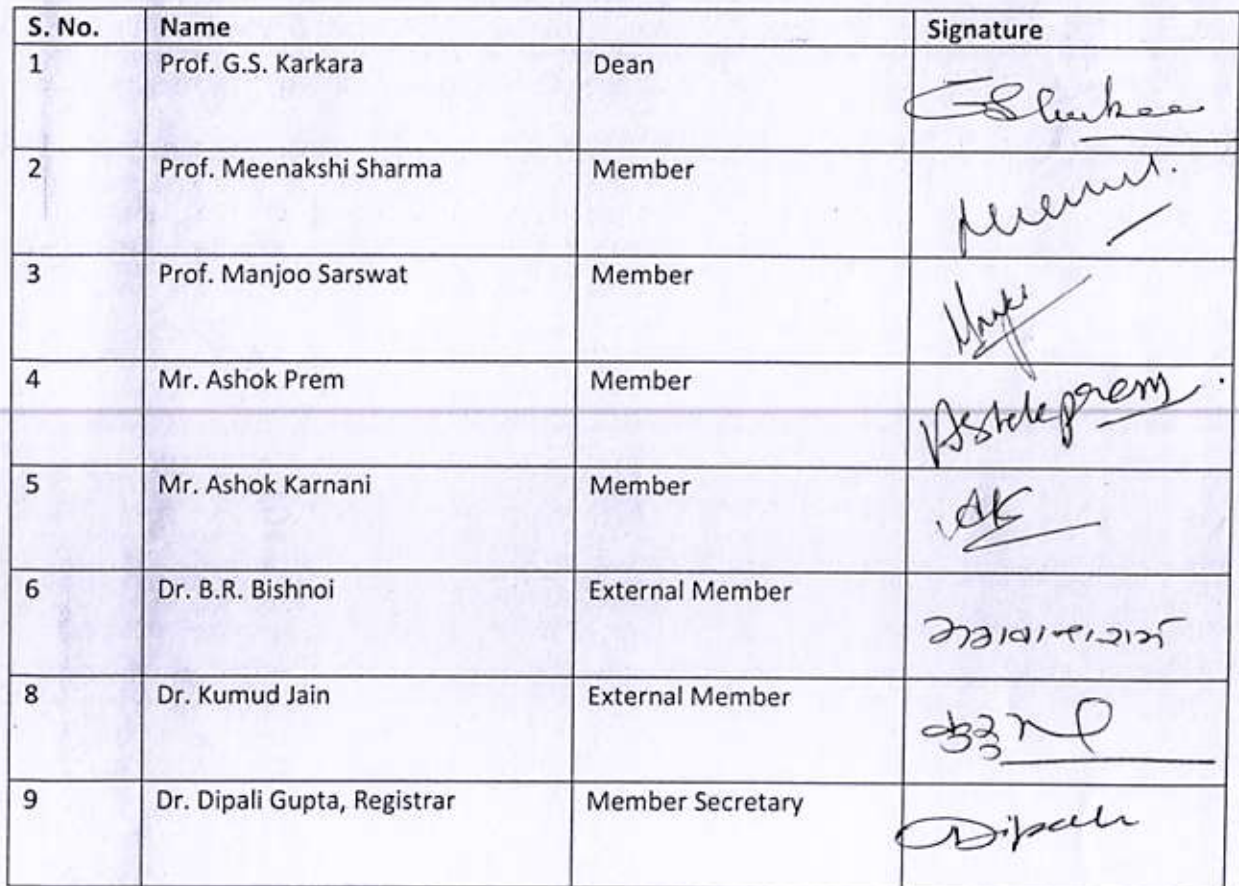 S. No. Name Signature
1 Prof. G.S. Karkara Dean
2 Prof. Meenakshi Sharma Member
3 Prof. Manjoo Sarswat Member
4 Mr. Ashok Prem Member Ashokprem
5 Mr. Ashok Karnani Member AK
6 Dr. B.R. Bishnoi External Member
8 Dr. Kumud Jain External Member
9 Dr. Dipali Gupta, Registrar Member Secretary Dipali